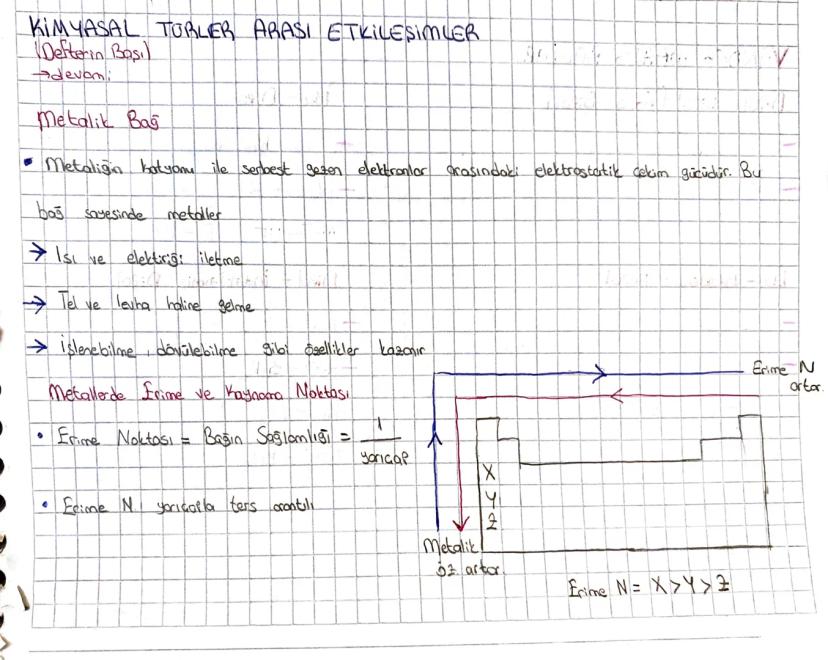 KİMYASAL TÜRLER ARASI ETKİLEŞİMLER
(Defterin Başı)
→devamı
Metalik Bağ
• Metaliğin katyonu ile serbest gezen elektronlar arasındaki elektrostatik çekim gücüdür. Bu
bağ sayesinde metaller
→ Isı ve elektiriği iletme
→ Tel ve levha haline gelme
→ İşlenebilme, dövülebilme gibi özellikler kazanır
Metallerde Erime ve Kaynama Noktası
• Erime Noktası = Bağın Sağlamlığı = 1
yarıçap
• Erime N. yarıçapla ters orantılı
Erime N
artar.
X
Y
Z
Metalik
öz. artar.
Erime N = X > Y > Z